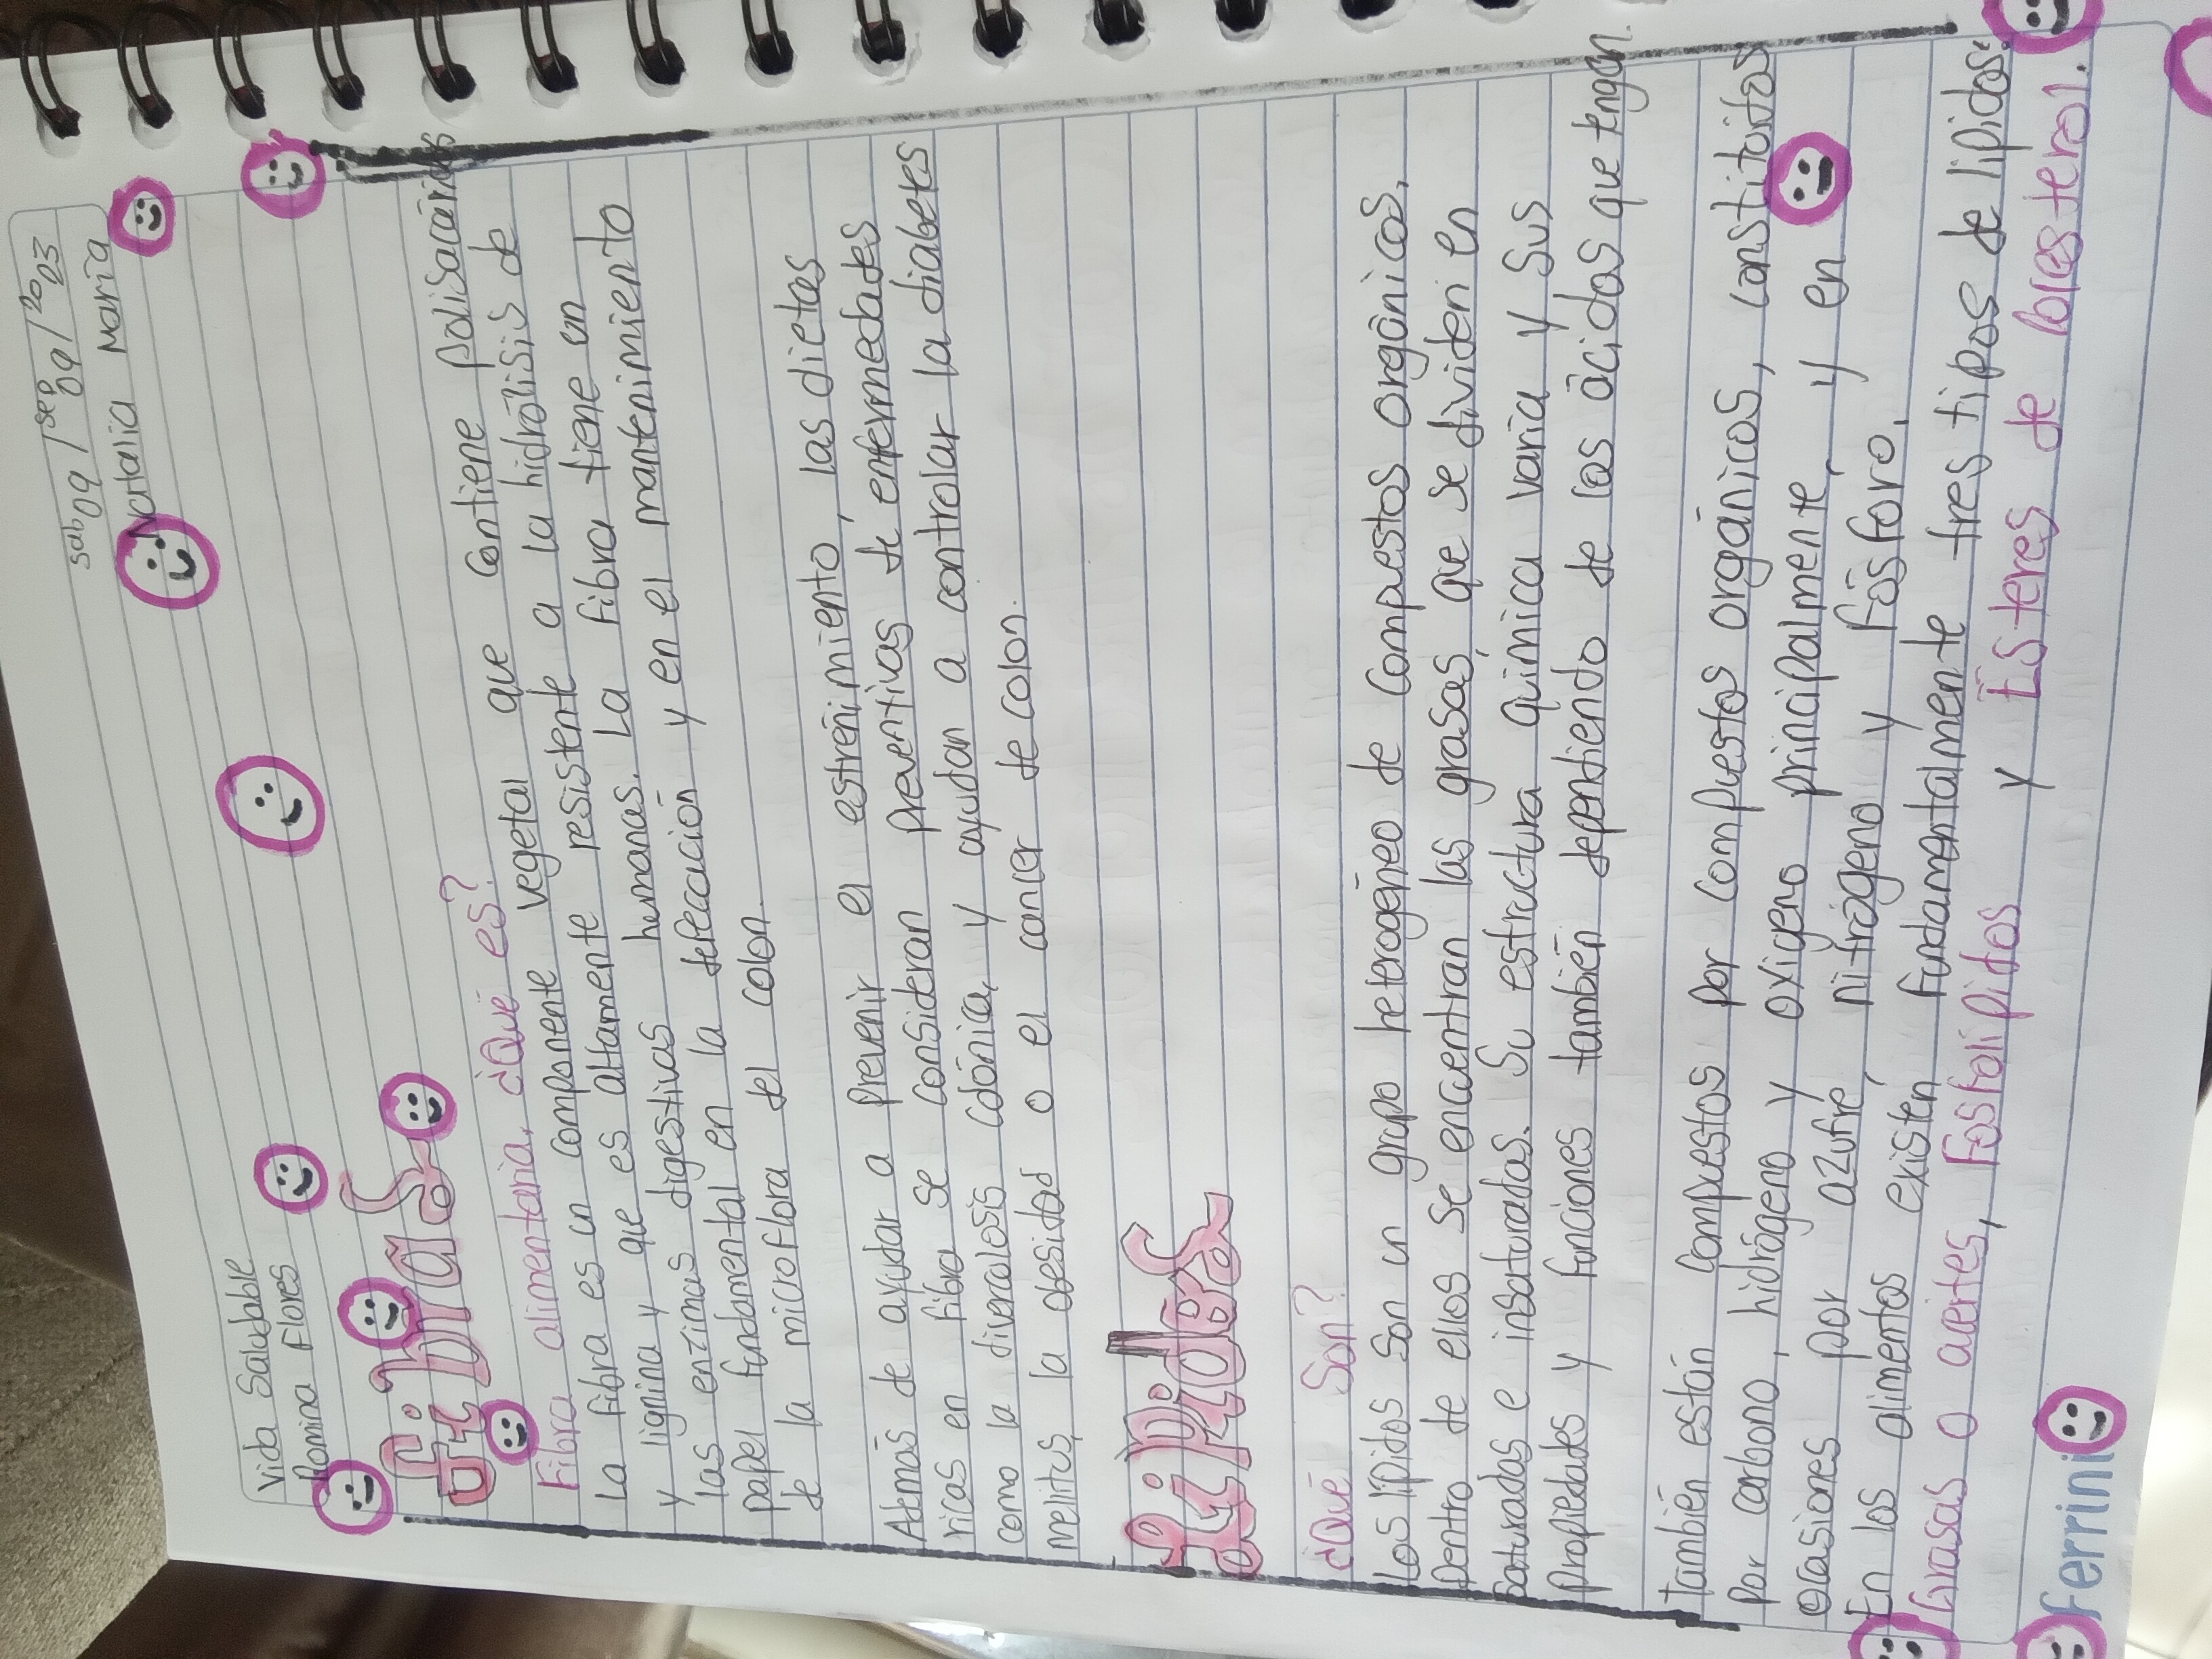 sab 09 / sep 09 / 2023
Vida Saludable
Natalia Maria
Romina Flores
Fibras
Fibra alimentaria, ¿Qué es?
La fibra es un componente vegetal que contiene polisacáridos
y lignina y que es altamente resistente a la hidrólisis de
las enzimas digestivas humanas. La fibra tiene un
papel fundamental en la defecación y en el mantenimiento
de la microflora del colon.
Además de ayudar a prevenir el estreñimiento, las dietas
ricas en fibra se consideran preventivas de enfermedades
como la diverculosis colónica, y ayudan a controlar la diabetes
mellitus, la obesidad o el cancer de colon.
Lipidos
¿Qué Son?
Los lipidos son un grupo heterogéneo de compuestos orgánicos.
Dentro de ellos se encuentran las grasas, que se dividen en
saturadas e insaturadas. Su estructura química varia y sus
propiedades y funciones también dependiendo de los ácidos que tengan.
También están compuestos por compuestos orgánicos, constituidos
por carbono, hidrógeno y oxigeno principalmente, y en
ocasiones por azufre, nitrógeno y fósforo.
En los alimentos existen fundamentalmente tres tipos de lipidos:
Grasas o aceites, Fosfolípidos y Ésteres de colesterol.
Ferrini